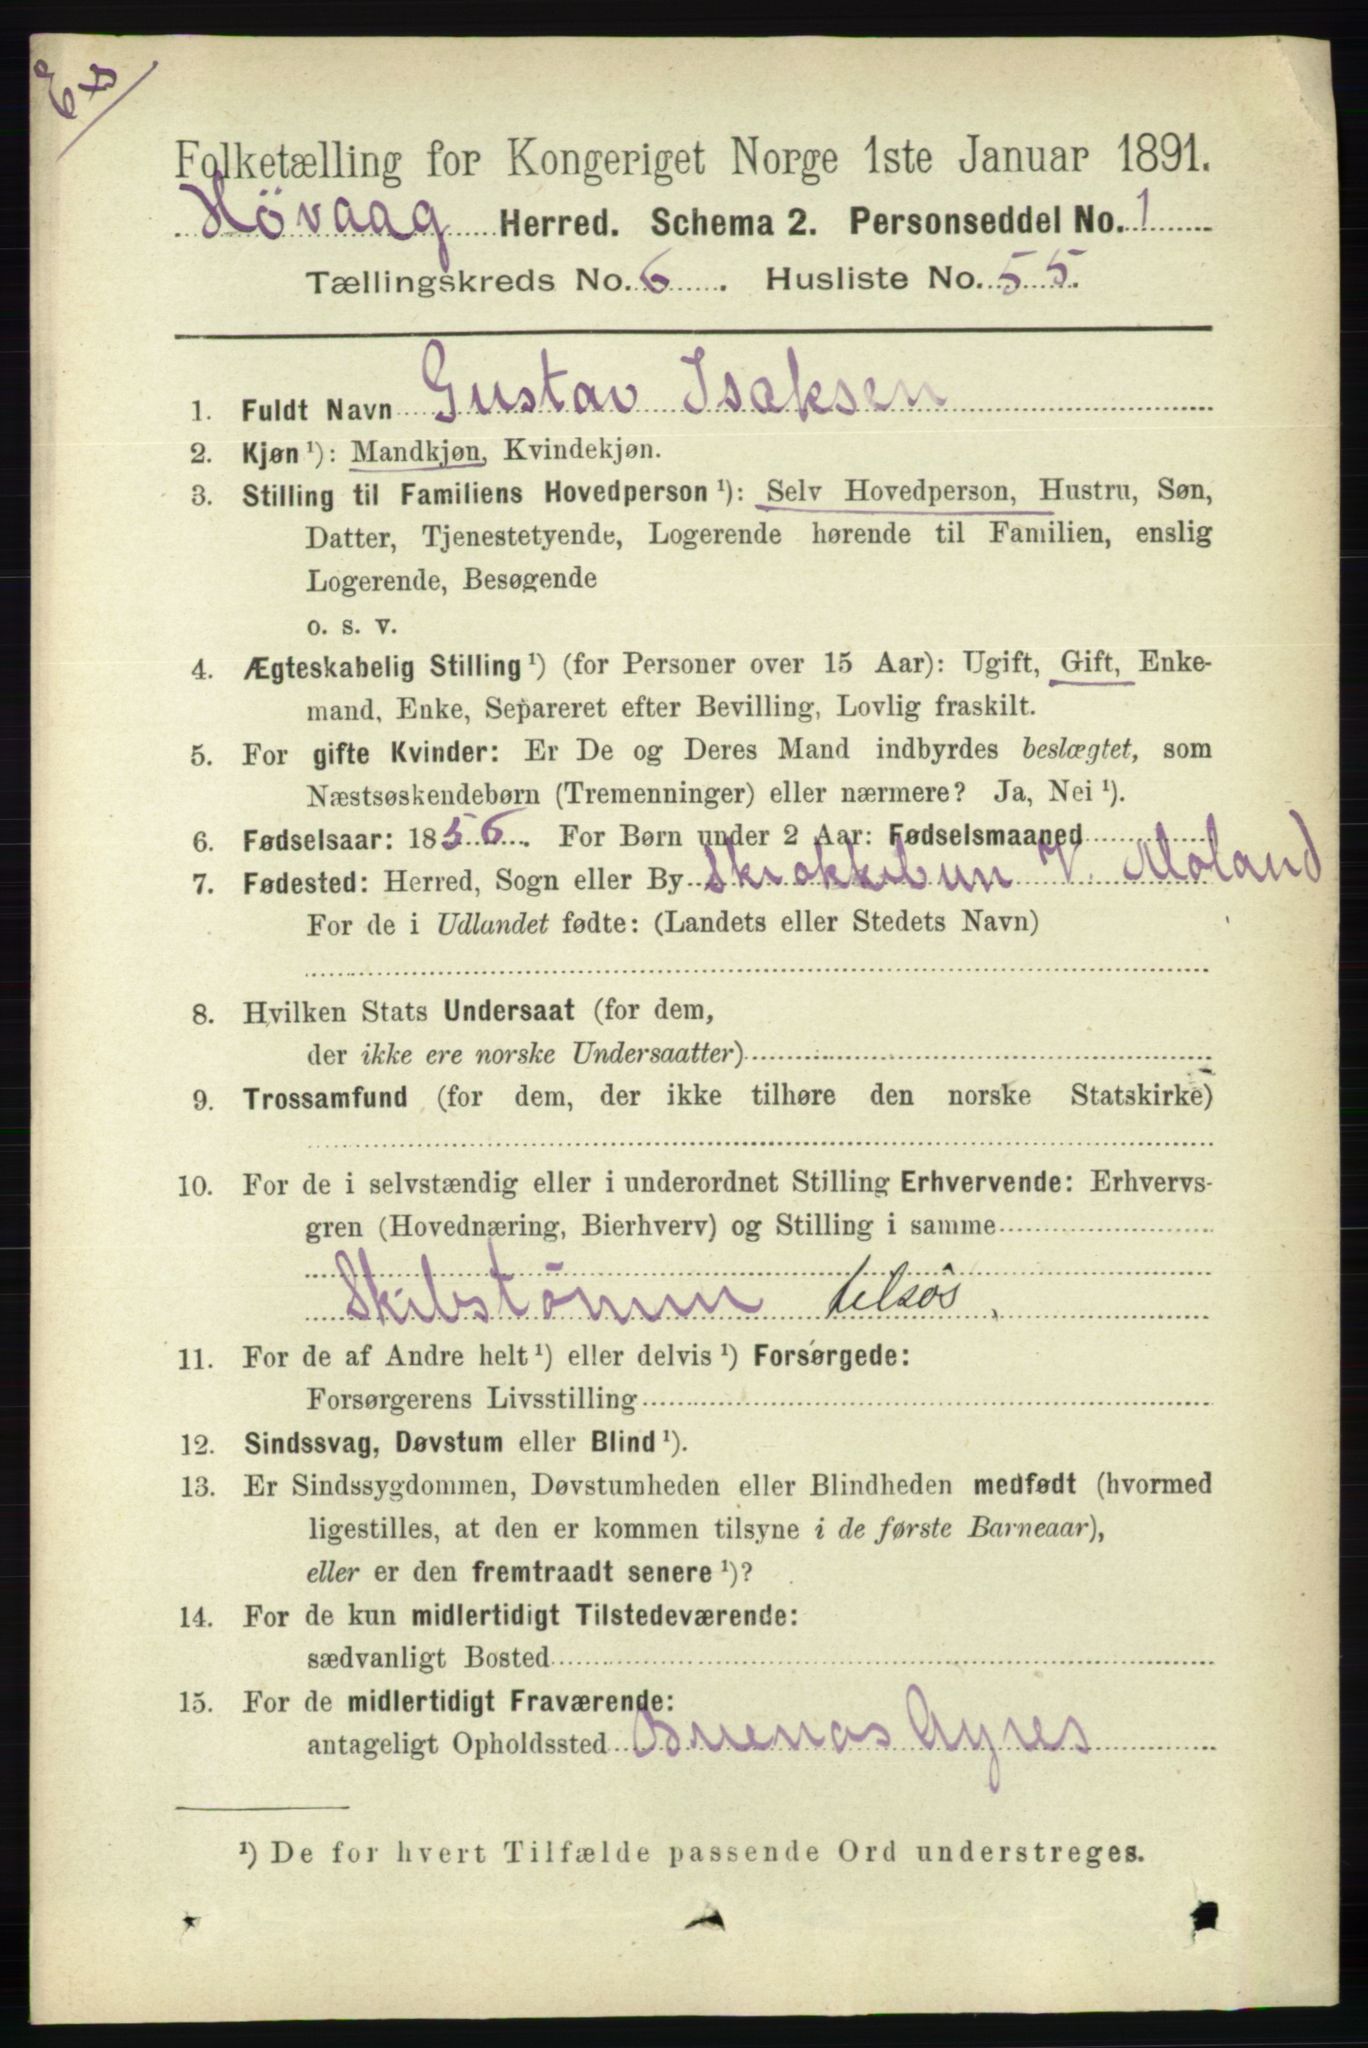 Folketælling for Kongeriget Norge 1ste Januar 1891.
Høvaag Herred. Schema 2. Personseddel No. 1
Tællingskreds No. 6. Husliste No. 55.
1. Fuldt Navn Gustav Isaksen
2. Kjøn ¹): Mandkjøn, Kvindekjøn.
3. Stilling til Familiens Hovedperson ¹): Selv Hovedperson, Hustru, Søn,
Datter, Tjenestetyende, Logerende hørende til Familien, enslig
Logerende, Besøgende
o. s. v.
4. Ægteskabelig Stilling ¹) (for Personer over 15 Aar): Ugift, Gift, Enke-
mand, Enke, Separeret efter Bevilling, Lovlig fraskilt.
5. For gifte Kvinder: Er De og Deres Mand indbyrdes beslægtet, som
Næstsøskendebørn (Tremenninger) eller nærmere? Ja, Nei ¹).
6. Fødselsaar: 1856. For Børn under 2 Aar: Fødselsmaaned
7. Fødested: Herred, Sogn eller By V. Moland
For de i Udlandet fødte: (Landets eller Stedets Navn)
8. Hvilken Stats Undersaat (for dem,
der ikke ere norske Undersaatter)
9. Trossamfund (for dem, der ikke tilhøre den norske Statskirke)
10. For de i selvstændig eller i underordnet Stilling Erhvervende: Erhvervs-
gren (Hovednæring, Bierhverv) og Stilling i samme
Skibstømm tilsøs.
11. For de af Andre helt ¹) eller delvis ¹) Forsørgede:
Forsørgerens Livsstilling
12. Sindssvag, Døvstum eller Blind ¹).
13. Er Sindssygdommen, Døvstumheden eller Blindheden medfødt (hvormed
ligestilles, at den er kommen tilsyne i de første Barneaar),
eller er den fremtraadt senere ¹)?
14. For de kun midlertidigt Tilstedeværende:
sædvanligt Bosted
15. For de midlertidigt Fraværende:
antageligt Opholdssted Buenos Ayres
¹) De for hvert Tilfælde passende Ord understreges.